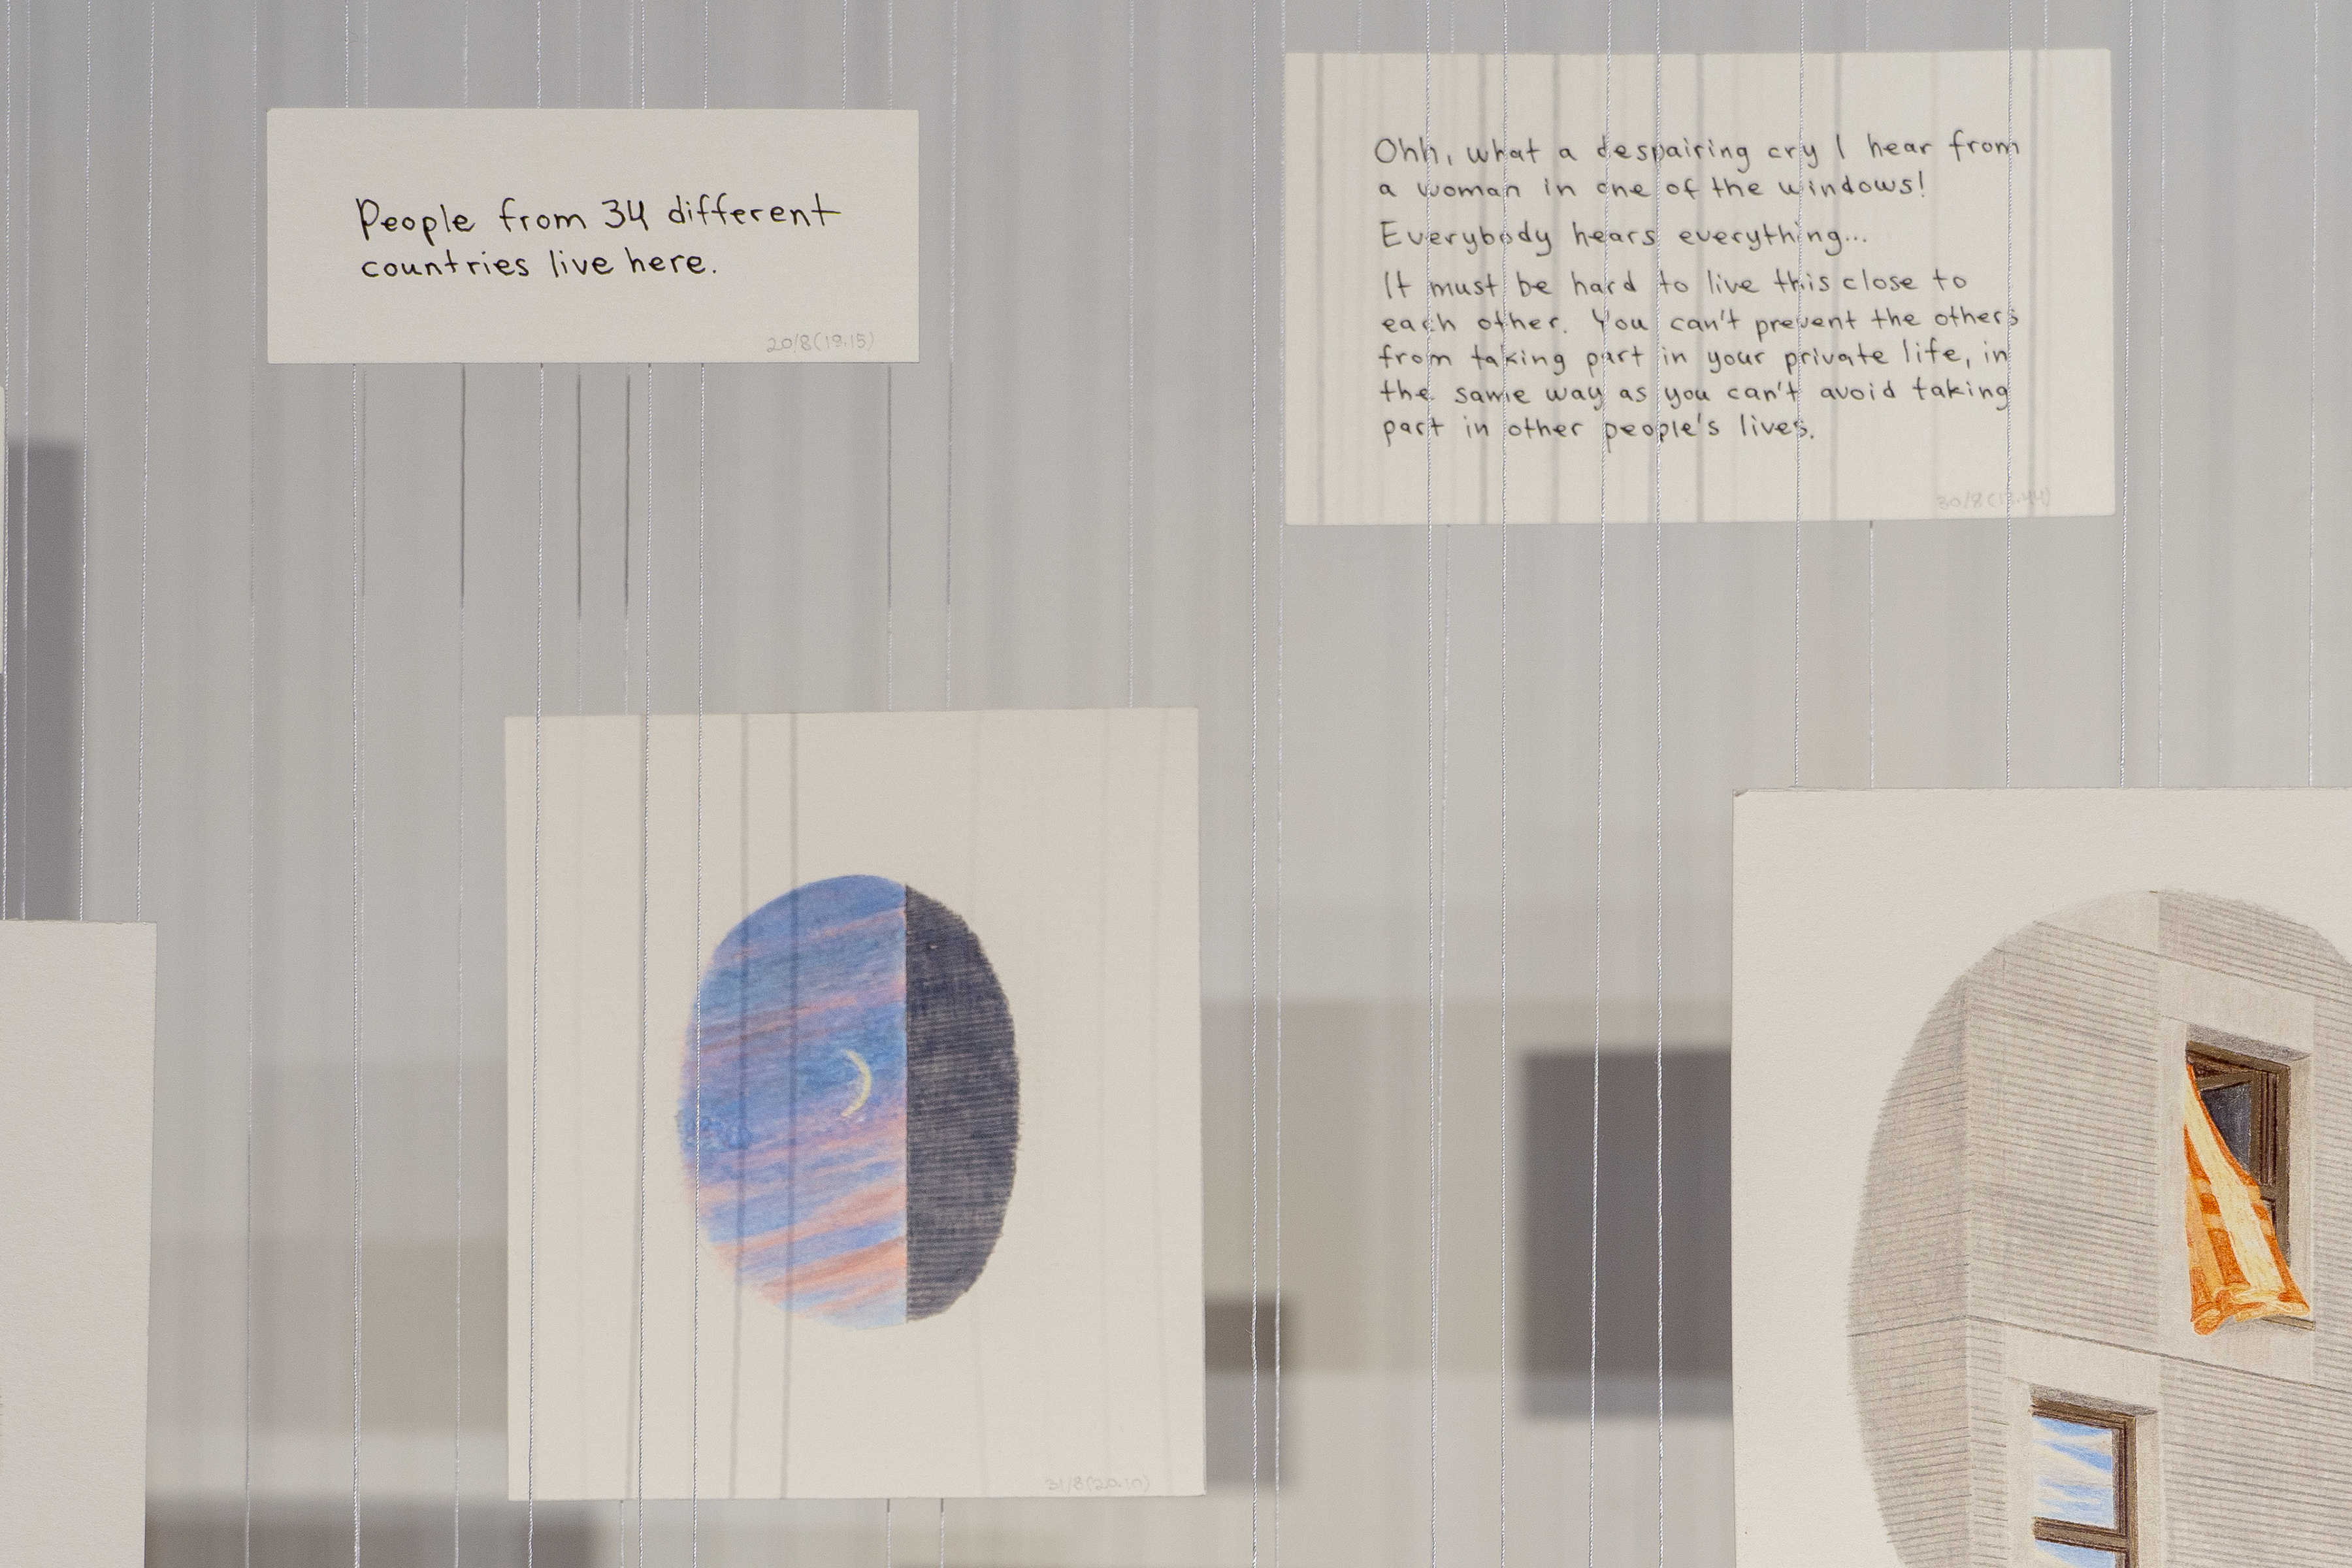 People from 34 different
countries live here.
20/8(19.15)
Ohh, what a despairing cry I hear from
a woman in one of the windows!
Everybody hears everything...
It must be hard to live this close to
each other. You can't prevent the others
from taking part in your private life, in
the same way as you can't avoid taking
part in other people's lives.
30/8(19.44)
31/8(20.10)